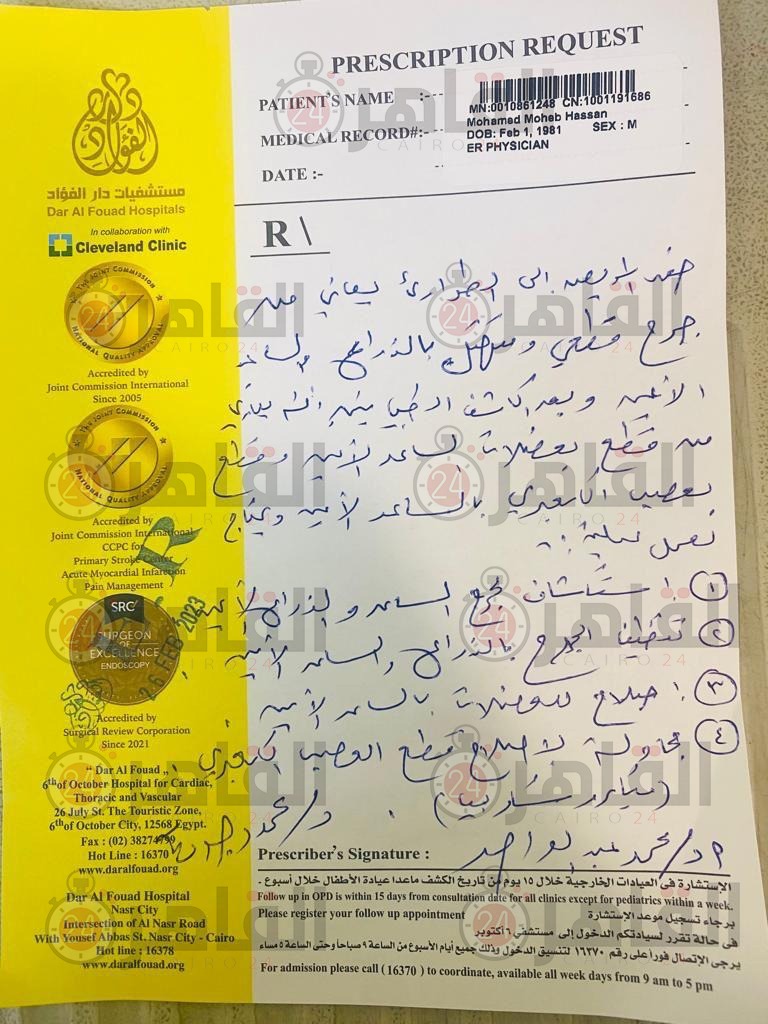 PRESCRIPTION REQUEST
PATIENT'S NAME :---
MN:0010861248 CN:1001191686
Mohamed Moheb Hassan
MEDICAL RECORD#:---
DOB: Feb 1, 1981 SEX : M
ER PHYSICIAN
DATE :-
R\
دار الفؤاد
مستشفيات دار الفؤاد
Dar Al Fouad Hospitals
In collaboration with
Cleveland Clinic
THE JOINT COMMISSION
NATIONAL QUALITY APPROVAL
Accredited by
Joint Commission International
Since 2005
THE JOINT COMMISSION
NATIONAL QUALITY APPROVAL
Accredited by
Joint Commission International
CCPC for
Primary Stroke Center
Acute Myocardial Infarction
Pain Management
SRC
SURGEON
OF
EXCELLENCE
ENDOSCOPY
26 FEB 2023
Accredited by
Surgical Review Corporation
Since 2021
" Dar Al Fouad "
6th of October Hospital for Cardiac,
Thoracic and Vascular
26 July St. The Touristic Zone,
6th of October City, 12568 Egypt.
Fax : (02) 38274799
Hot Line : 16370
www.daralfouad.org
Dar Al Fouad Hospital
Nasr City
Intersection of Al Nasr Road
With Yousef Abbas St. Nasr City - Cairo
Hot line : 16378
www.daralfouad.org
حضر المريض الى الطوارئ يعاني من
جرح قطعي ومتهتك بالذراع والساعد
الأيمن وبعد الكشف الطبي تبين أنه يعاني
من قطع بعضلات الساعد الأيمن وقطع
بعصب الكعبري بالساعد الأيمن ويحتاج
لعمل عملية :-
١ استكشاف لجرح الساعد والذراع الأيمن
٢ تنظيف الجرح بالذراع والساعد الأيمن
٣ اصلاح للعضلات بالساعد الأيمن
٤ محاولة لاصلاح قطع العصب الكعبري
(ميكروسكوبيا)
د/ محمد
أ د/ محمد عبد الواحد
Prescriber's Signature :
الإستشارة فى العيادات الخارجية خلال ١٥ يوم من تاريخ الكشف ماعدا عيادة الأطفال خلال أسبوع .
Follow up in OPD is within 15 days from consultation date for all clinics except for pediatrics within a week.
Please register your follow up appointment
برجاء تسجيل موعد الإستشارة
فى حالة تقرر لسيادتكم الدخول إلى مستشفى ٦ أكتوبر
يرجى الإتصال فورا على رقم ١٦٣٧٠ لتنسيق الدخول وذلك جميع أيام الأسبوع من الساعة ٩ صباحا وحتى الساعة ٥ مساء
For admission please call (16370 ) to coordinate, available all week days from 9 am to 5 pm
القاهرة 24
CAIRO 24